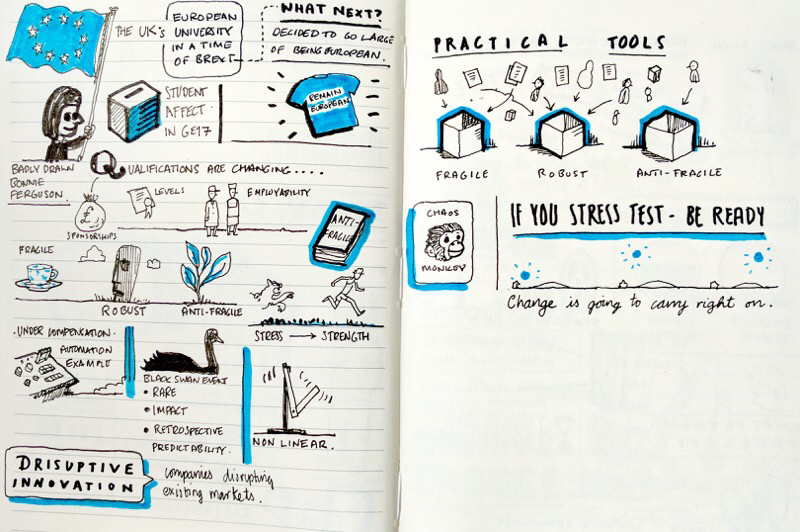 THE UK'S
EUROPEAN
UNIVERSITY
IN A TIME
OF BREXIT
WHAT NEXT?
DECIDED TO GO LARGE
OF BEING EUROPEAN.
STUDENT
AFFECT
IN GE17
REMAIN
EUROPEAN
BADLY DRAWN
BONNIE
FERGUSON.
QUALIFICATIONS ARE CHANGING....
£
SPONSORSHIPS
LEVELS
EMPLOYABILITY
ANTI-
FRAGILE
FRAGILE
ROBUST
ANTI-FRAGILE
STRESS → STRENGTH
·UNDER COMPENSATION·
AUTOMATION
EXAMPLE
BLACK SWAN EVENT
• RARE
• IMPACT
• RETROSPECTIVE
PREDICTABILITY.
NON LINEAR.
DRISUPTIVE
INNOVATION
companies disrupting
existing markets.
PRACTICAL TOOLS
FRAGILE
ROBUST
ANTI-FRAGILE
CHAOS
MONKEY
IF YOU STRESS TEST - BE READY
Change is going to carry right on.